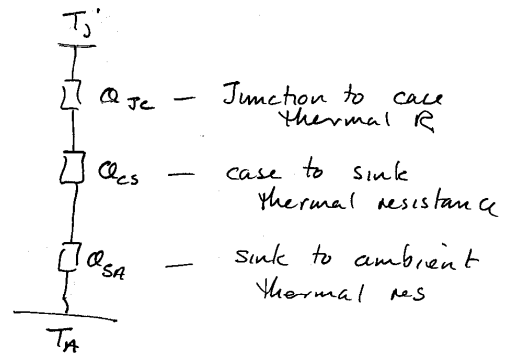 Tj
θJC — Junction to case
thermal R
θCS — case to sink
thermal resistance
θSA — sink to ambient
thermal res
TA